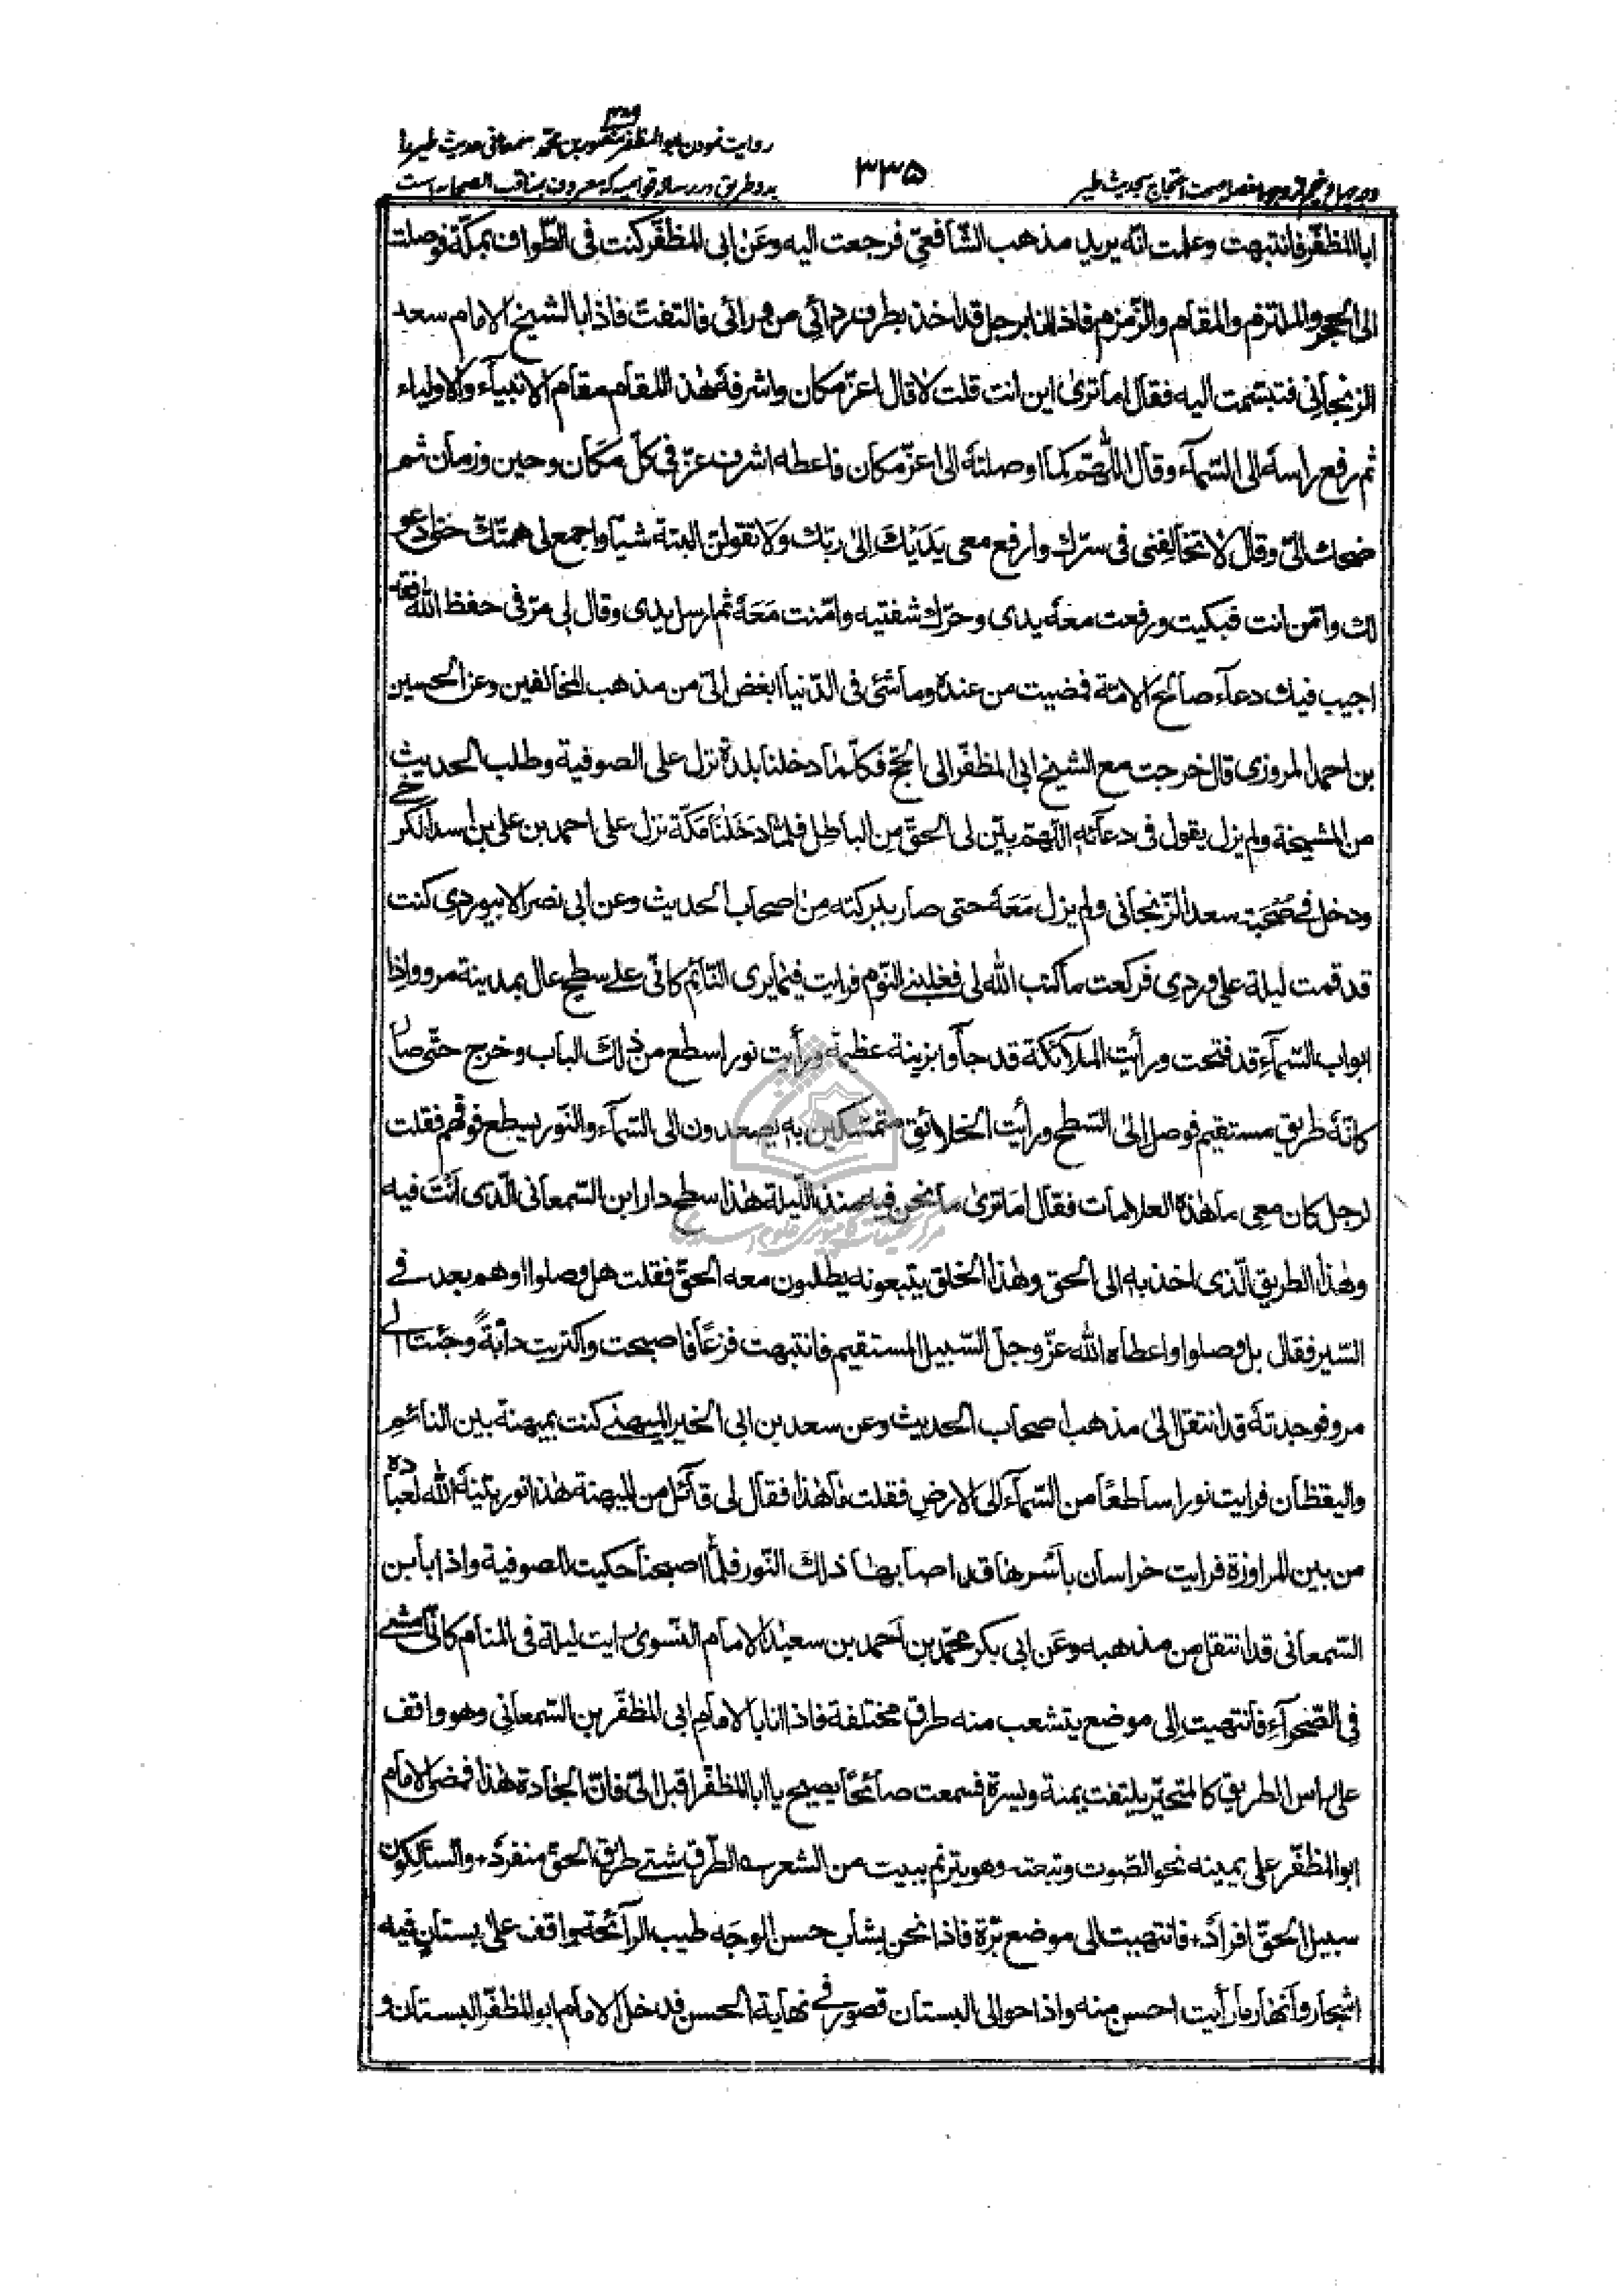 روایت نمودن ابو المظفر منصور بن محمد سمعانی حدیث طیر را
۳۳۵
بدو طریق در رساله قوامیه که معروف بمناقب الصحابه است
ابا المظفّر فانتبهت وعلمت انّه یرید مذهب الشّافعیّ فرجعت الیه وعَن ابی المظفّر کنت فی الطّواف بمکّة فوصلت
الی الحجر والملتزم والمقام والزّمزم فاذا انا برجل قد اخذ بطرف ردائی من ورائی فالتفتّ فاذا بالشیخ الامام سعد
الزنجانی فتبسّمت الیه فقال اما تری این انت قلت لا قال اعزّ مکان واشرفه هٰذا المقام مقام الانبیآء والاولیاء
ثم رفع راسه الی السّمآء وقال اللّٰهمّ کما اوصلته الی اعزّ مکان فاعطه اشرف عزّ فی کلّ مکان وحین وزمان ثم
ضحك الیّ وقال لا تخالفنی فی سرّك وارفع معی یَدَیْكَ اِلیٰ ربّك ولا تقولنّ البتة شیأ واجمع لی همّتك حتّی ادعو
لك وامّن انت فبکیت ورفعت معه یدی وحرّك شفتیه وامّنت مَعَه ثم ارسل یدی وقال لی مرّ فی حفظ اللّٰه فقد
اجیب فیك دعآء صالح الامّة فمضیت من عنده وما شئ فی الدّنیا ابغض الیّ من مذهب المخالفین وعن الحسین
بن احمد المروزی قال خرجت مع الشیخ ابی المظفّر الی الحجّ فکلّما دخلنا بلدة نزل علی الصوفیة وطلب الحدیث
من المشیخة ولم یزل یقول فی دعآئه اللّهمّ بیّن لی الحقّ مِنَ الباطل فلمّا دَخَلْنَا مَکّة نزل علی احمد بن علی بن اسد الکرخی
ودخل فی صُحْبَة سعد الزّنجانی ولم یزل مَعَه حتی صار ببرکته مِن اصحاب الحدیث وعن ابی نصر الابیوردی کنت
قد قمت لیلة علی وردی فرکعت ما کتب اللّٰه لی فغلبنی النّوم فرایت فیما یری النّائم کانّی علی سطح عال بمدینة مرو واِذا
ابواب السّمآءِ قد فتحت ورأیت الملآئکة قد جآوا بزینة عظیمة ورأیت نورا سطع من ذٰلك الباب وخرج حتّی صار
کانّه طریق مستقیم فوصل اِلی السّطح ورأیت الخلائق متمسّکین به یصعدون الی السّمآء والنّور یسطع فوقهم فقلت
لرجل کان معی ما هٰذه العلامات فقال اما تریٰ ما نحن فیه منذ اللّیلة هٰذا سطح دار ابن السّمعانی الّذی اَنْتَ فیه
وهٰذا الطریق الّذی اخذ به الی الحق وهٰذا الخلق یتبعونه یطلبون معه الحقّ فقلت هل وصلوا او هم بعد فی
السّیر فقال بل وصلوا واعطاه اللّٰه عزّ وجلّ السّبیل المستقیم فانتبهت فزعًا فاصبحت واکتریت دابّةً وجئت الی
مرو فوجدته قد انتقل الیٰ مذهب اصحاب الحدیث وعن سعد بن ابی الخیر المیهنی کنت بمیهنة بین النائم
والیقظان فرایت نورا ساطعًا من السّمآء الی الارض فقلت ما هٰذا فقال لی قآئل من المیهنة هٰذا نور بیّنه اللّٰه لعباده
من بین المراوزة فرایت خراسان باَسْرها قد اصابها ذٰلك النّور فلمّا اصبحنا حکیت للصوفیة واذا بابن
السّمعانی قد انتقل من مذهبه وعَن ابی بکر محمّد بن اَحمد بن سعید الامام النّسوی رایت لیلة فی المنام کانّی امشی
فی الصّحرآءِ فانتهیت اِلی موضع یتشعب منه طرق مختلفة فاذا انا بالامام ابی المظفّر بن السّمعانی وهو واقف
علی راس الطریق کالمتحیّر یلتفت یمنة ویسرة فسمعت صآئحًا یصیح یا ابا المظفّر اقبل الیّ فانّ الجادة هٰذا فمضی الامام
ابو المظفّر علی یمینه نحو الصّوت وتبعته وهو یترنّم ببیت من الشعر ب الطّرق شتّی طریق الحقّ منفرد + والسّالکون
سبیل الحقّ افراد + فانتهیت الی موضع نزه فاذا نحن بشاب حسن الوجه طیب الرآئحة واقف علیٰ بستان فیه
اشجار وانهار ما رأیت احسن منه واذا حوالی البستان قصور فی نهایة الحسن فدخل الامام ابو المظفّر البستان و